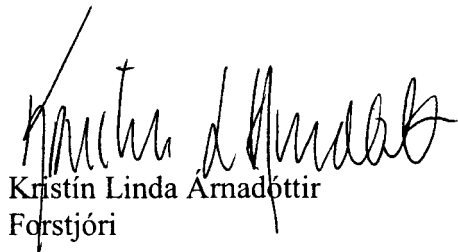 Kristín L Árnadótt
Kristín Linda Árnadóttir
Forstjóri